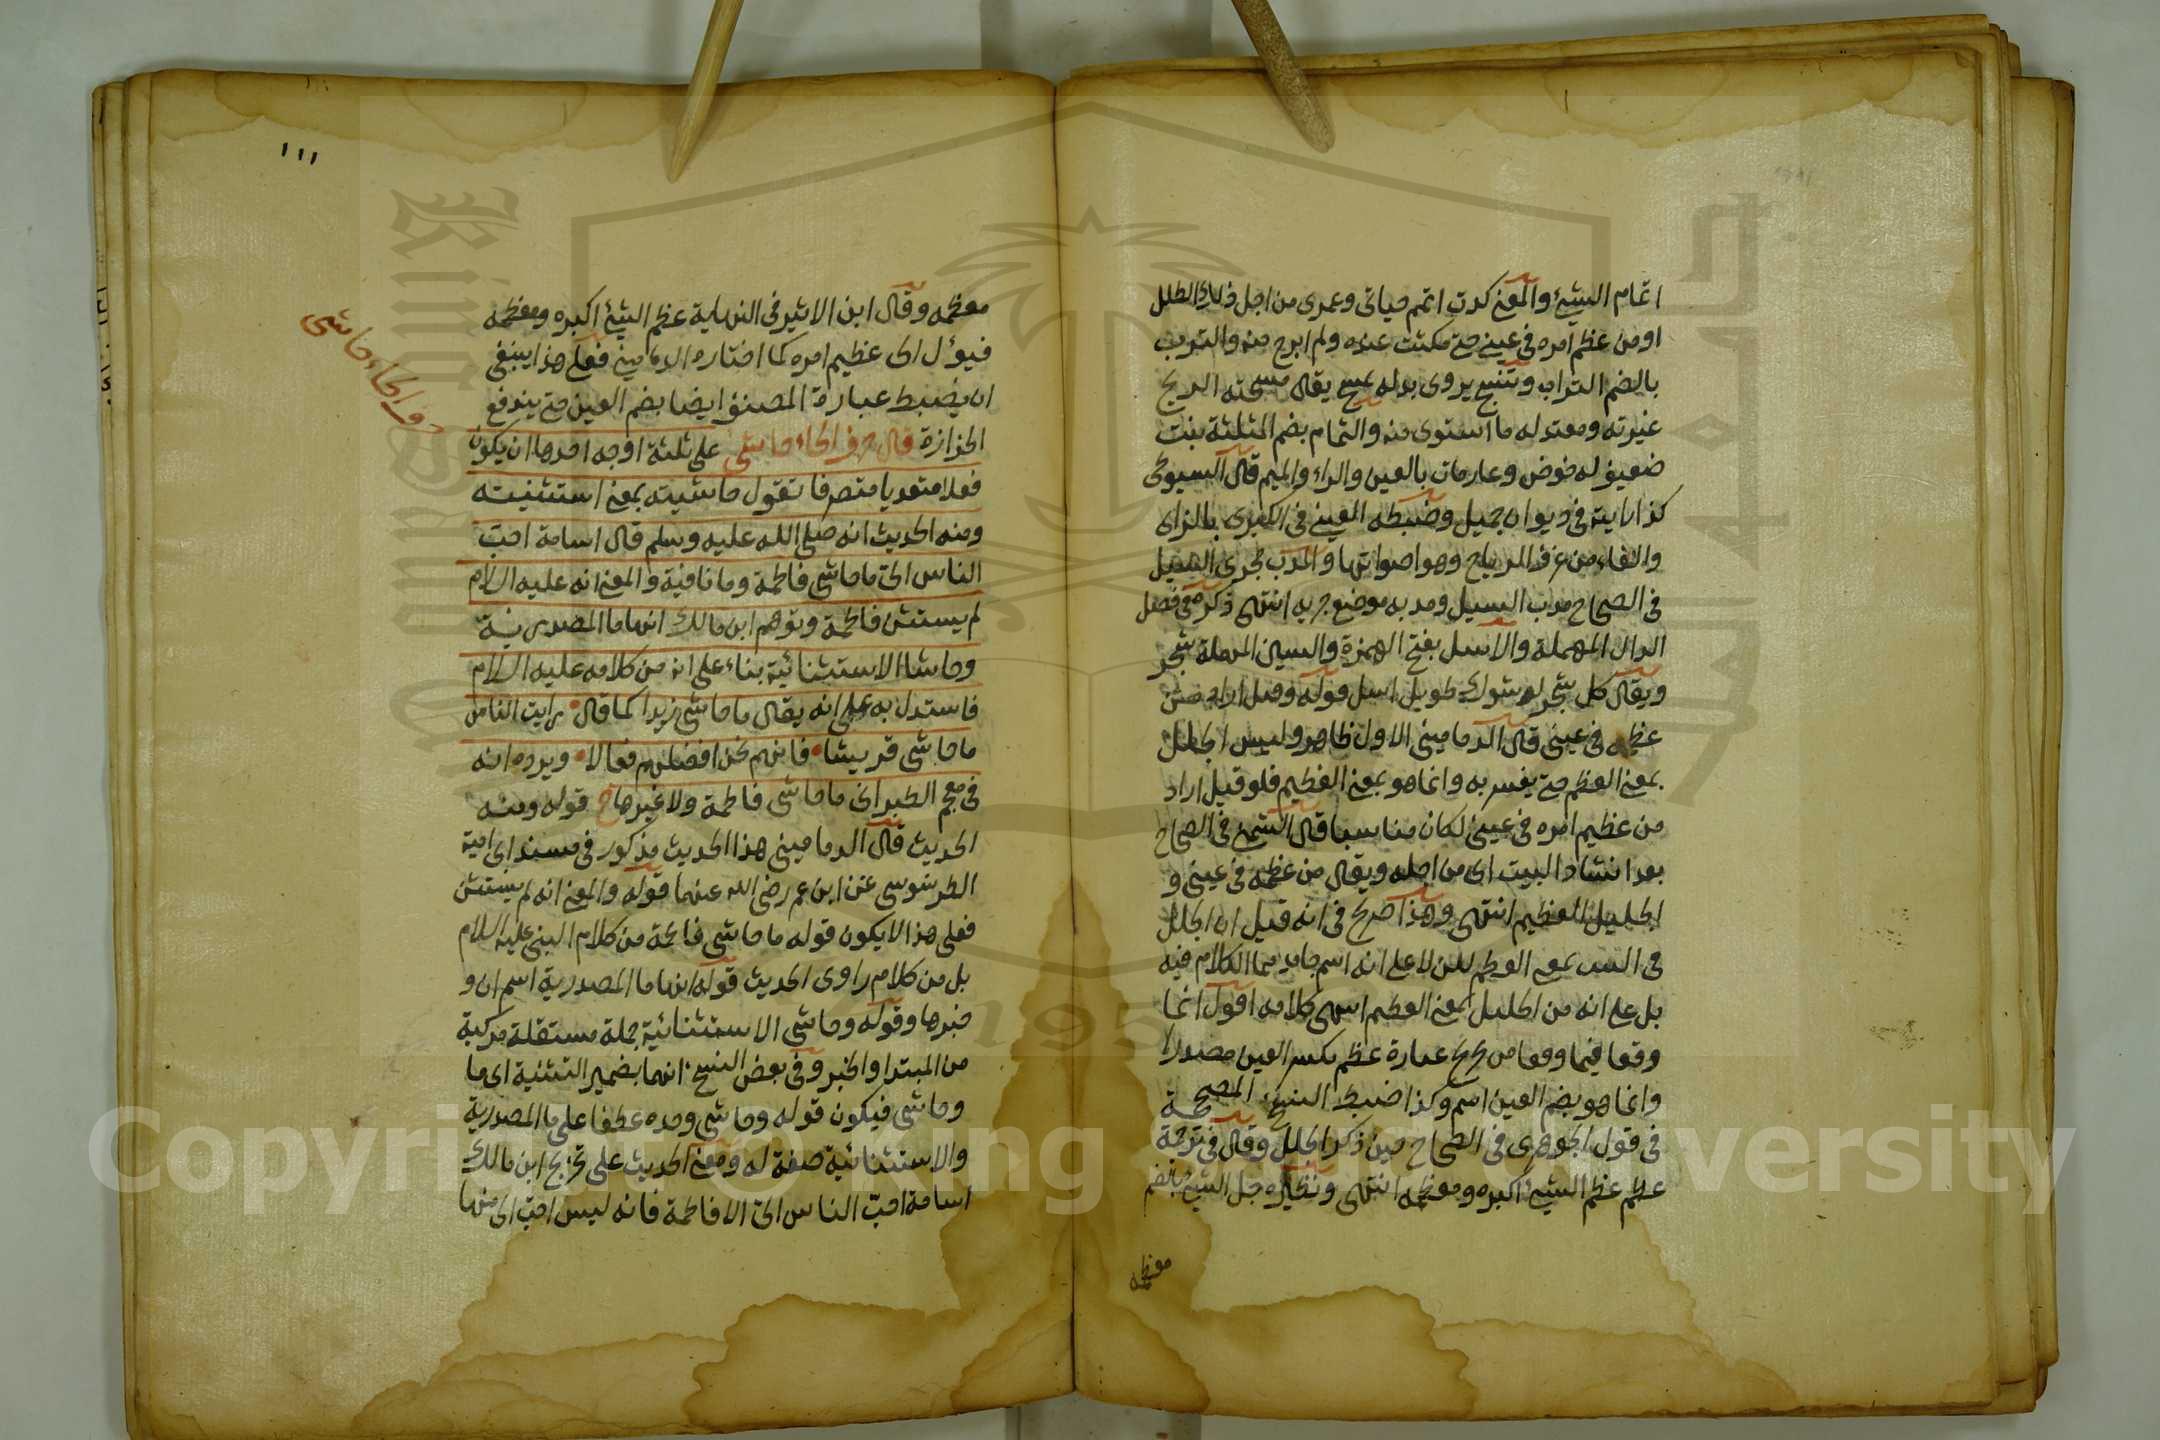 اتمام الشيئ والمعنى كدت اتمم حياتى وعمرى من اجل ذلك الطلل
او من عظم امره فى عينى حتى مكثت عنده ولم ابرح منه والترب
بالضم التراب وتنسج يروى بدله يقال الريح
ومعتدله ما استوى منه والثمام بضم المثلثة نبت
ضعيف له خوض وعارمات بالعين والراء والميم قال السيوطى
كذا رايته فى ديوان جميل وضبطه العينى فى الكبرى بالزاى
والفاء من عزف الرياح وهو اصواتها والمدب مجرى السيل
فى الصحاح مدب السيل ومدبه موضع جريه انتهى ذكره فى فصل
الدال المهملة والاسل بفتح الهمزة والسين المهملة شجر
ويقال كل شجر له شوك طويل اسل قوله وقيل اراد من
عظمه فى عينى قال الدمامينى الاول ظاهر وليس الجلل
بمعنى العظم حتى يفسر به وانما هو بمعنى العظيم فلو قيل اراد
من عظيم امره فى عينى لكان مناسبا قال الشمنى فى الصحاح
بعد انشاد البيت اى من اجله ويقال من عظمه فى عينى و
الجليل العظيم انتهى وهذا صريح فى انه قيل ان الجلل
فى البيت بمعنى العظم لكن لا على انه اسم جامد مما الكلام فيه
بل على انه من الجليل بمعنى العظيم انتهى كلامه اقول انما
وقعا فيما وقعا من عبارة عظم بكسر العين مصدرا
وانما هو بضم العين اسم وكذا ضبط النسخ المصححة
فى قول الجوهرى فى الصحاح حين ذكر الجلل وقال فى ترجمة
عظم عظم الشيئ اكبره ومعظمه انتهى ونظيره جل الشيئ بالضم
معظمه
١١١
معظمه وقال ابن الاثير فى النهاية عظم الشيئ اكبره ومعظمه
فيؤل الى عظيم امره كما اختاره الدمامينى فعلى هذا ينبغى
ان يضبط عبارة المصنف ايضا بضم العين حتى يندفع
الحزازة قال حرف الحاء حاشى على ثلثة اوجه احدها ان يكون
حرف الحاء حاشى
فعلا متعديا متصرفا تقول حاشيته بمعنى استثنيته
ومنه الحديث انه صلى الله عليه وسلم قال اسامة احب
الناس الى ما حاشى فاطمة وما نافية والمعنى انه عليه السلام
لم يستثن فاطمة وتوهم ابن مالك انها ما المصدرية
وحاشا الاستثنائية بناء على انه من كلامه عليه السلام
فاستدل به على انه يقال ما حاشى زيدا كما قال رايت الناس
ما حاشى قريشا فانهم نحن افضلهم فعالا ويرده انه
فى معجم الطبرانى ما حاشى فاطمة ولا غيرها قوله ومنه
الحديث قال الدمامينى هذا الحديث مذكور فى مسند ابى امية
الطرسوسى عن ابن عمر رضى الله عنهما قوله والمعنى انه لم يستثن
فعلى هذا لا يكون قوله ما حاشى فاطمة من كلام النبى عليه السلام
بل من كلام راوى الحديث قوله انها ما المصدرية اسم ان و
خبرها وقوله وحاشى الاستثنائية جملة مستقلة مركبة
من المبتدا والخبر وفى بعض النسخ انهما بضمير التثنية اى ما
وحاشى فيكون قوله وحاشى وحده عطفا على ما المصدرية
والاستثنائية صفة له ومعنى الحديث على تخريج ابن مالك
اسامة احب الناس الى الا فاطمة فانه ليس احب الى منها
Copyright © King Saud University
King Saud University
1957